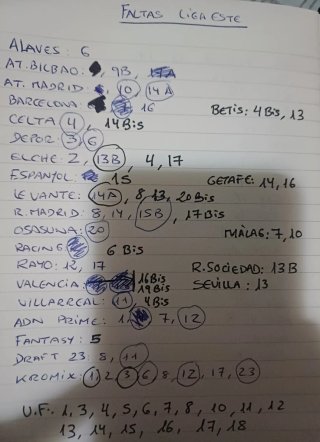 FALTAS LIGA ESTE
ALAVES: 6
AT. BILBAO: , 9B,
AT. MADRID , 10, 14A
BARCELONA: 7 16
BETIS: 4 Bis, 13
CELTA 4, 14 Bis
DEPOR: 3, 6
ELCHE: 2, 13B, 4, 17
ESPANYOL: 15
GETAFE: 14, 16
LEVANTE: 14A, 8, 13, 20 Bis
R. MADRID: 8, 14, 15B, 17 Bis
OSASUNA: 20
MÁLAG: 7, 10
RACING 6 Bis
RAYO: 12, 17
R. SOCIEDAD: 13B
VALENCIA: 16 Bis
19 Bis
SEVILLA: 13
VILLARREAL: 11, 4 Bis
ADN PRIME: 1, 7, 12
FANTASY: 5
DRAFT 23: 8, 11
KROMIX: 1, 2, 3, 6, 8, 12, 17, 23
U.F: 1, 3, 4, 5, 6, 7, 8, 10, 11, 12
13, 14, 15, 16, 17, 18